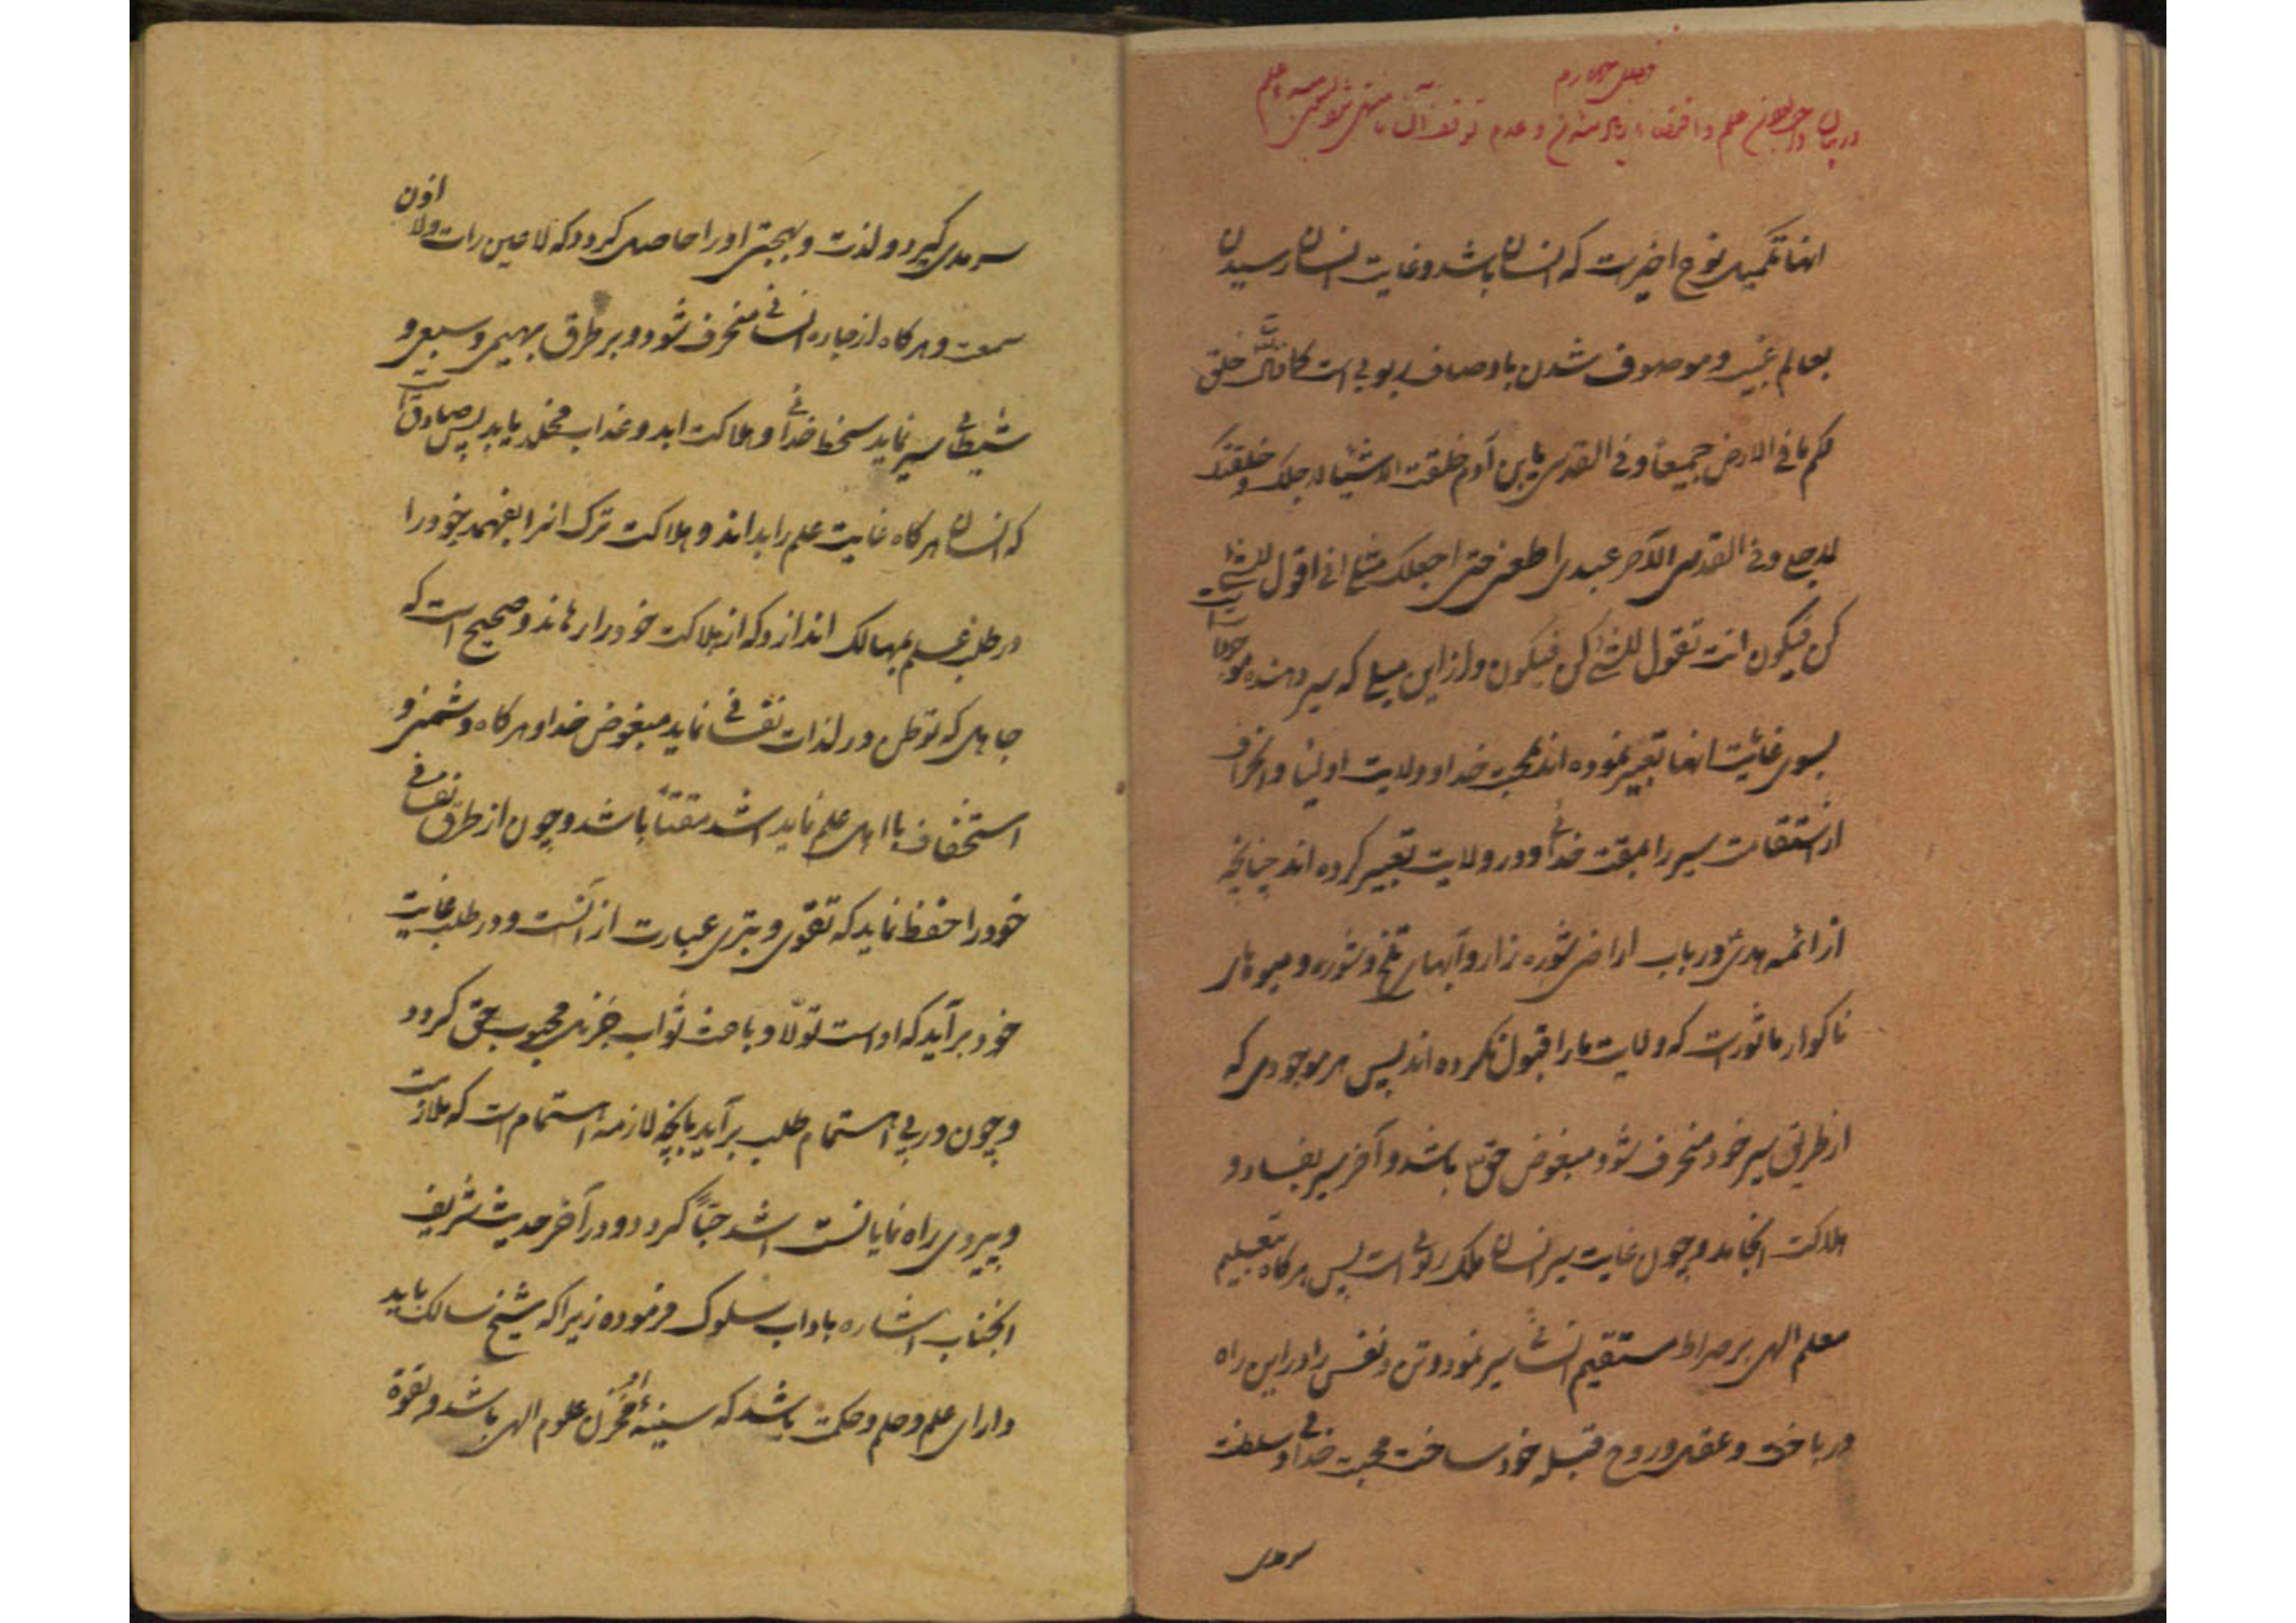 فصل چهارم
در بیان ذو جزئین بودن علم و اقتضاء ازدیاد نمودن و عدم توقف آن تا منتهی شود بسرچشمه علم
انها تکمیل نوع اخیرست که انسان باشد و غایت انسان رسیدن
بعالم غیب و موصوف شدن باوصاف ربوبی است کما قال تعالی خلق
لکم ما فی الارض جمیعاً و فی القدسی یابن آدم خلقت الاشیاء لاجلک و خلقتک
لاجلی و فی القدسی الآخر عبدی اطعنی حتی اجعلک مثلی انی اقول للشیء
کن فیکون انت تقول للشیء کن فیکون و از این میلی که سیر دهنده موجودات است
بسوی غایت انها تعبیر نموده اند بمحبت خدا و ولایت اولیا و انحراف
از استقامت سیر را بمقت خدائی و رد ولایت تعبیر کرده اند چنانچه
از ائمه هدی در باب اراضی شوره زار و آبهای تلخ و شوره و میوهای
ناکوار ماثورست که ولایت ما را قبول نکرده اند پس هر موجودی که
از طریق سیر خود منحرف شود مبغوض حق باشد و آخر سیر بفساد و
هلاکت انجامد و چون غایت سیر انسان ملک ربوبی است پس هرکاه بتعلیم
معلم الهی بر صراط مستقیم انسانی سیر نمود و تن و نفس را در این راه
درباخت و عقل و روح قبله خود ساخت محبت خدائی و سلطنت
سرمدی
سرمدی کیرد و لذت و بهجتی او را حاصل کردد که لا عین رات و لا اذن
سمعت و هرکاه از جاده انسانی منحرف شود و بر طرق بهیمی و سبعی و
شیطانی سیر نماید سخط خدائی و هلاکت ابد و عذاب مخلد یابد پس صادق است
که انسان هرکاه غایت علم را بداند و هلاکت ترک انرا بفهمد خود را
در طلب علم بمهالک اندازد که از هلاکت خود را رهاند و صحیح است که
جاهل که توطن در لذات نفسانی نماید مبغوض خدا و هرکاه دشمنی و
استخفاف با اهل علم نماید اشد مقتاً باشد و چون از طرق نفسانی
خود را حفظ نماید که تقوی و تبری عبارت از آنست و در طلب غایت
خود برآید که اوست تولّا و باعث ثواب جزیل محبوب حق کردد
و چون در پی استمام طلب برآید بانچه لازمه استمام است که ملازمت
و پیروی راه نمایانست اشد حبّاً کردد و در آخر حدیث شریف
انجناب اشاره باداب سلوک فرموده زیرا که شیخ سالک باید
دارای علم و حلم و حکمت باشد که سینهٔ او مخزن علوم الهی باشد و بقوة